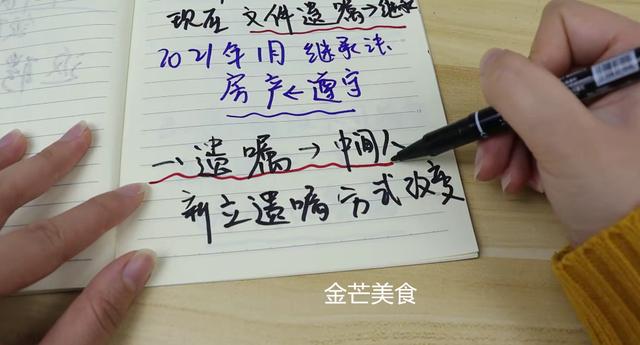 现在 文件遗嘱→继承
2021年1月 继承法
房产←遵守
一、遗嘱→中间人
新立遗嘱方式改变
金芒美食